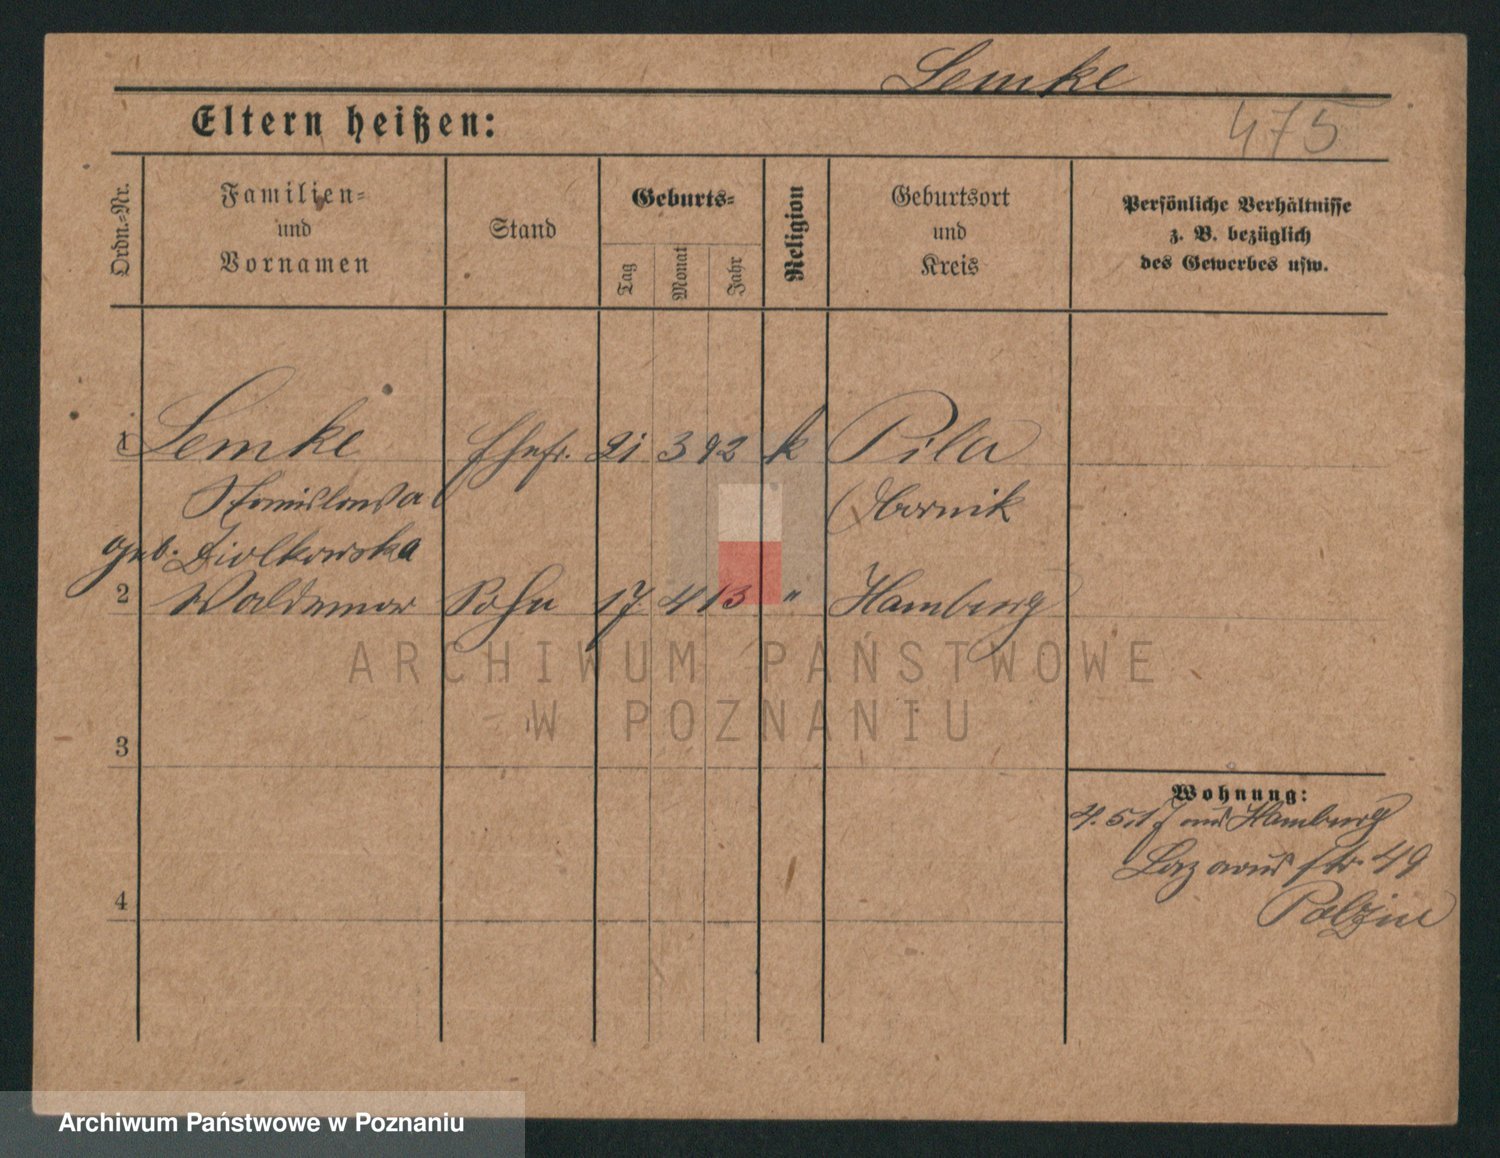 Lemke
Eltern heißen:
475
Ordn.-Nr.
Familien-
und
Vornamen
Stand
Geburts-
Tag
Monat
Jahr
Religion
Geburtsort
und
Kreis
Persönliche Verhältnisse
z. B. bezüglich
des Gewerbes usw.
1 Lemke Ehefr. 21 3 92 k Pila
Stanislawa Obornik
geb. Ziolkowska
2 Waldemar Sohn 17 4 13 " Hamburg
3
4
Wohnung:
4. 5. 17 aus Hamburg
Lazarus str. 49
ARCHIWUM PAŃSTWOWE
W POZNANIU
Archiwum Państwowe w Poznaniu